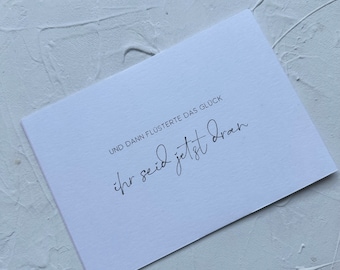 UND DANN FLÜSTERTE DAS GLÜCK
ihr seid jetzt dran